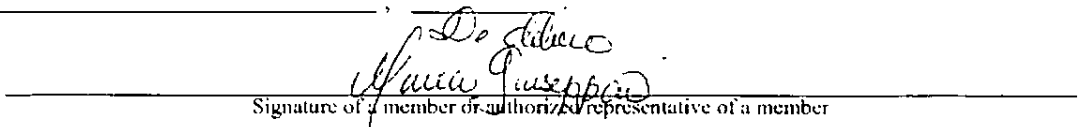 De
Maria Giuseppina
Signature of a member or authorized representative of a member